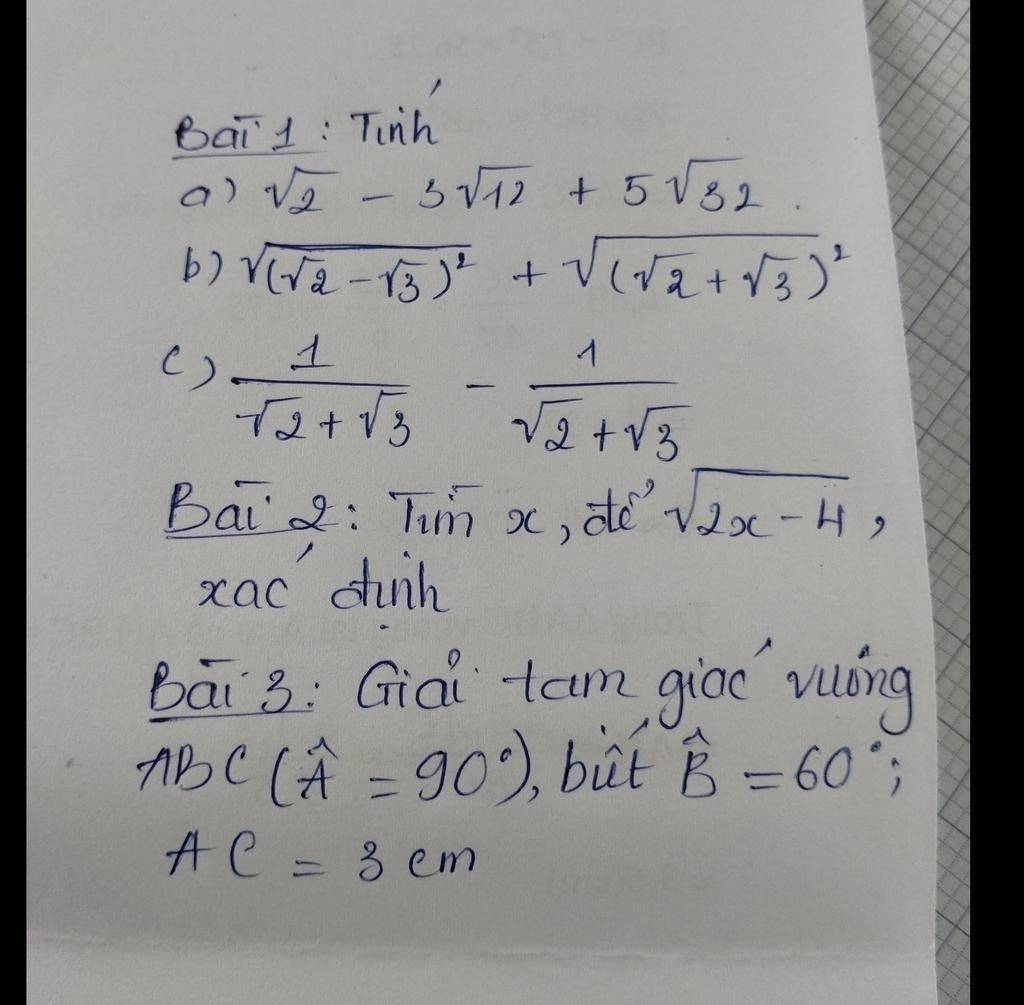 Bài 1: Tính
a) √2 - 3√12 + 5√32.
b) √(√2 - √3)² + √(√2 + √3)²
c) 1/(√2 + √3) - 1/(√2 + √3)
Bài 2: Tìm x, để √2x - 4,
xác định
Bài 3: Giải tam giác vuông
ABC (Â = 90°), biết B̂ = 60°;
AC = 3 cm